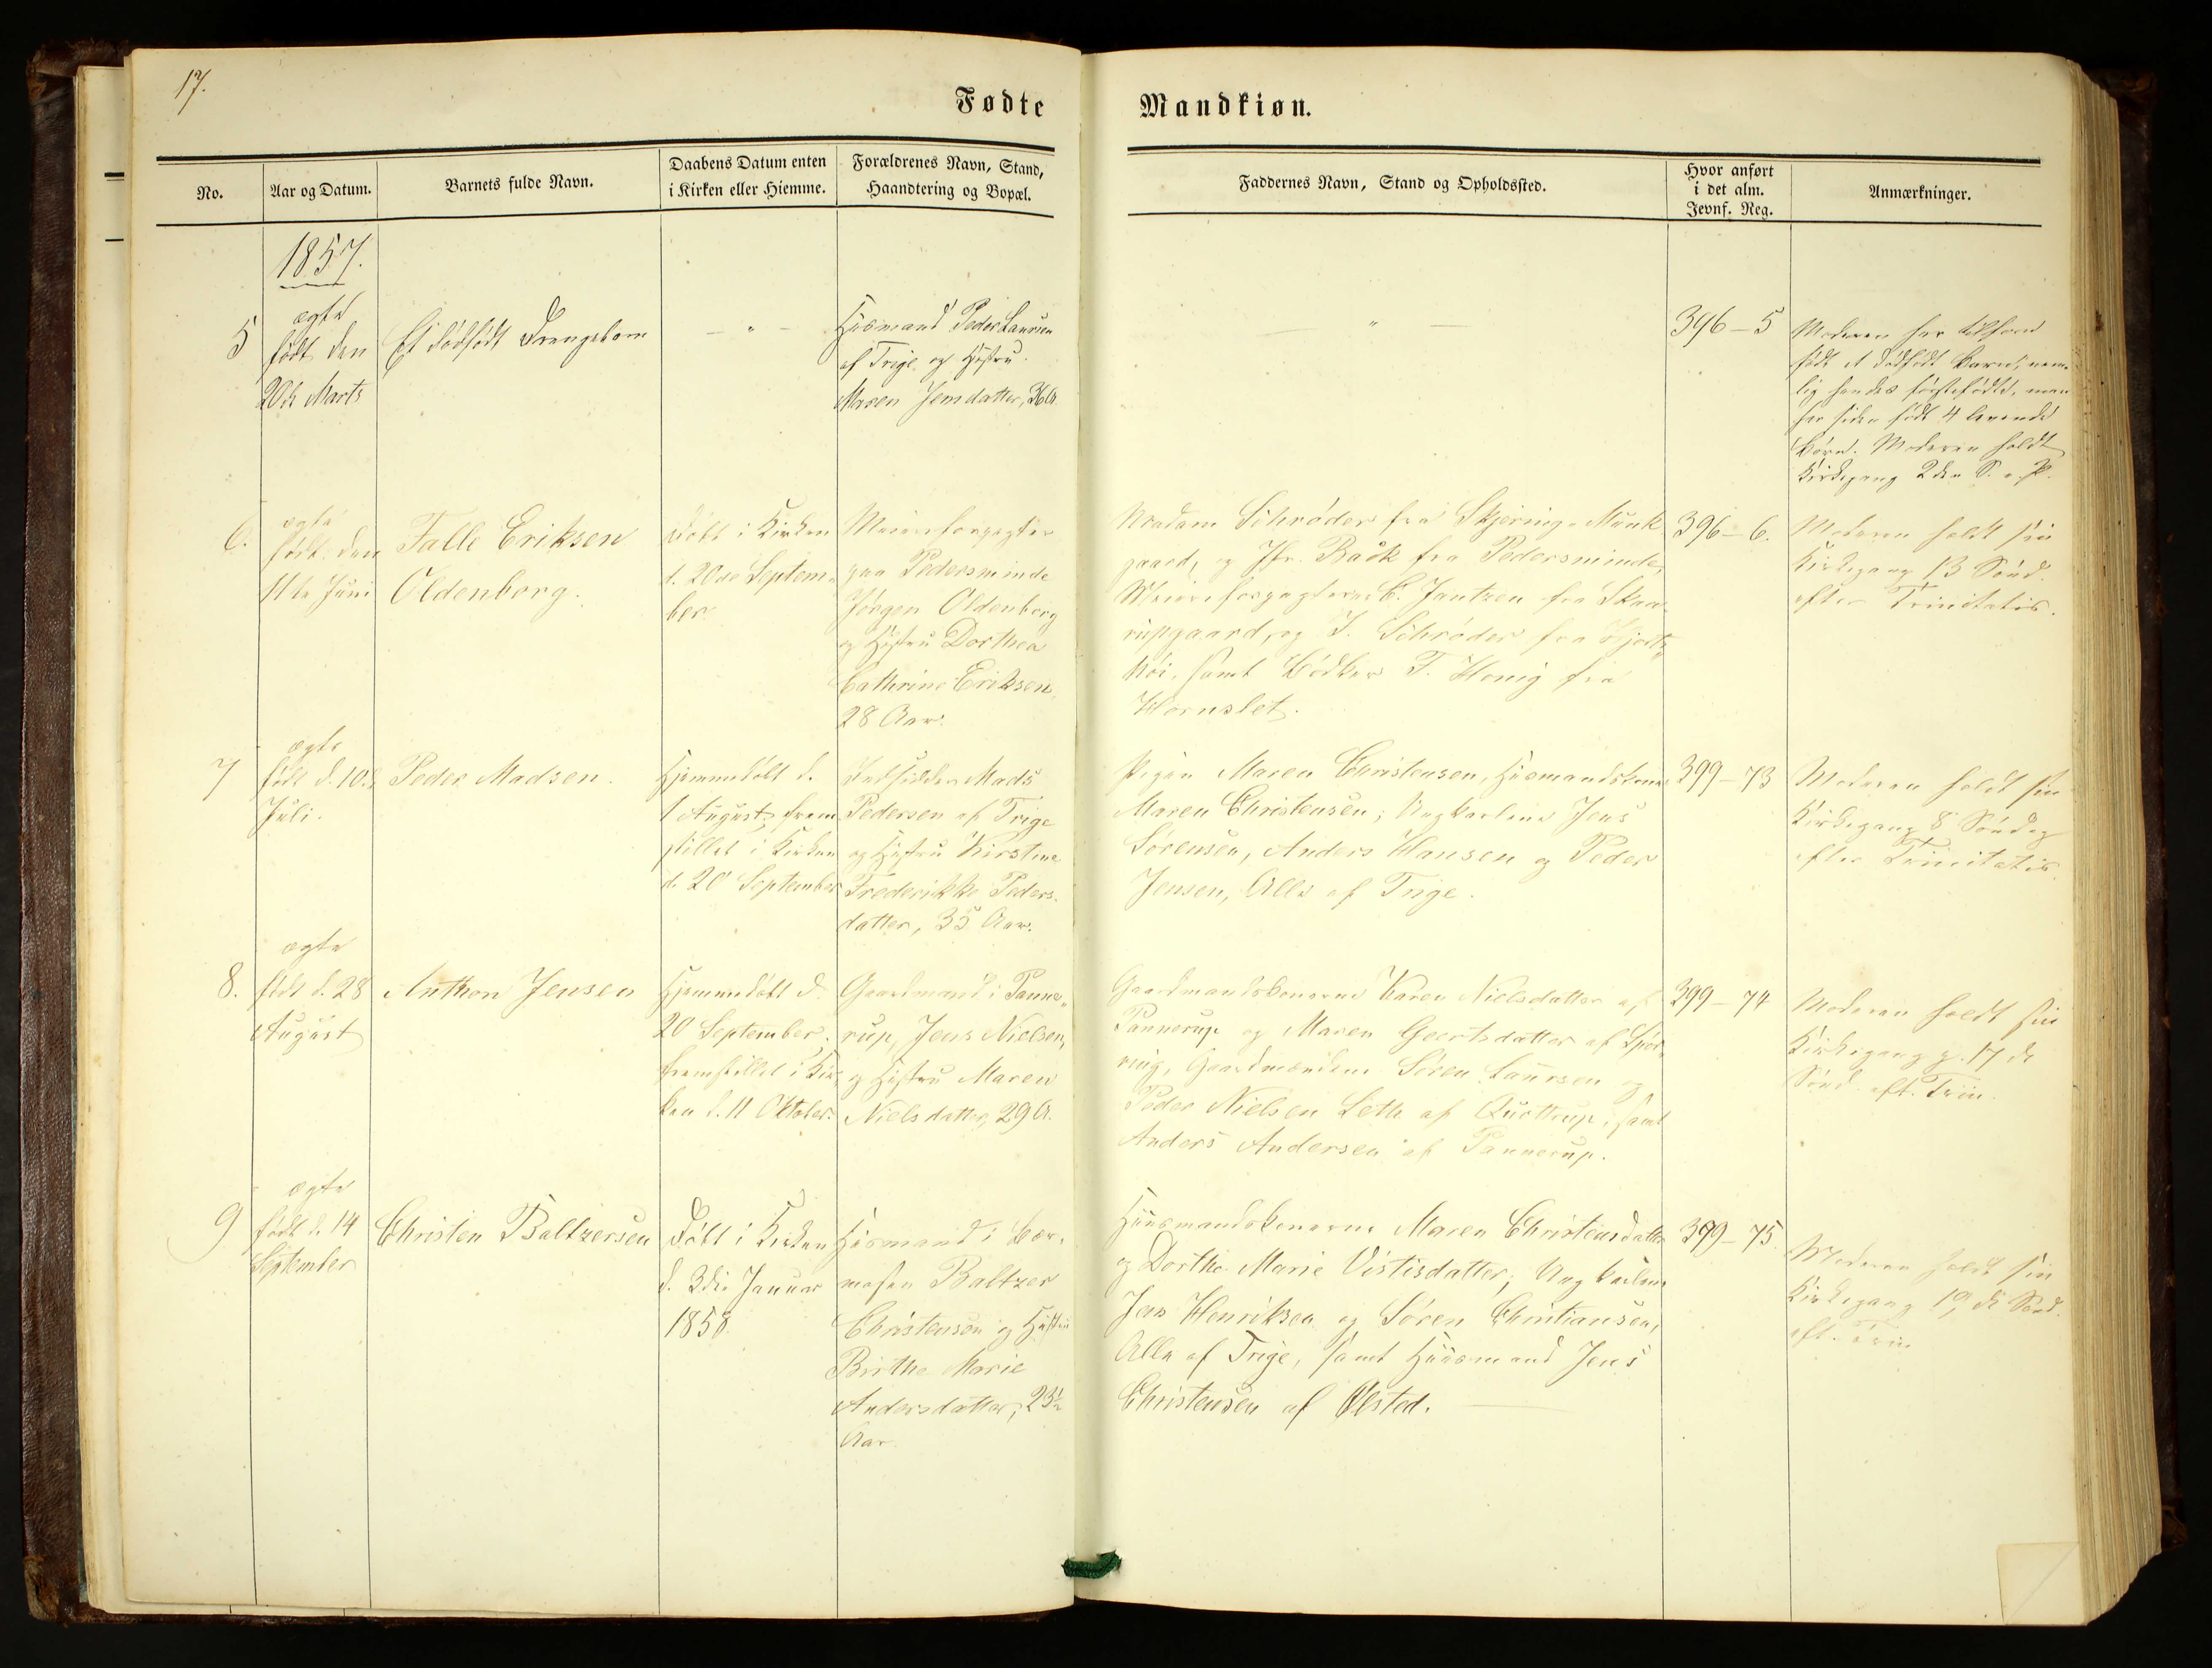 17.
Fødte Mandkiøn.
No.
Aar og Datum.
Barnets fulde Navn.
Daabens Datum enten
i Kirken eller Hiemme.
Forældrenes Navn, Stand,
Haandtering og Bopæl.
Faddernes Navn, Stand og Opholdssted.
Hvor anført
i det alm.
Jevnf. Reg.
Anmærkninger.
1857.
5
ægte
født den
20de Marts
Et dødfødt Drengebarn
— " —
Huusmand Peder Laursen
af Trige og Hustru
Maren Jensdatter, 36 A.
— "
396 – 5
Moderen har tilforn
født et dødfødt Barn, nem-
lig hendes førstefødte, men
har siden født 4 levende
Børn. Moderen holdt
Kirkegang 2den S. e. P.
6.
ægte
født den
11te Juni
Falle Eriksen
Oldenborg.
Døbt i Kirken
d. 20de Septem-
ber.
Meieriforpagter
paa Pedersminde
Jørgen Oldenborg
og Hustru Dorthea
Cathrine Eriksen,
28 Aar.
Madam Schrøder fra Skjering-Munk
gaard, og Jfr. Baåk fra Pedersminde,
Meieriforpagterne C. Jantzen fra Skaa-
rupgaard, og J. Schrøder fra Hjorts-
høi, samt Bødker F. Honig fra
Hornslet.
396 – 6.
Moderen holdt sin
Kirkegang 13 Sønd.
efter Trinitatis.
7
ægte
født d. 10de
Juli.
Peder Madsen.
Hjemmedøbt d.
1 August, frem-
stillet i Kirken
d. 20 September
Indsidder Mads
Pedersen af Trige
og Hustru Kirstine
Frederikke Peders-
datter, 35 Aar.
Pigen Maren Christensen, Huusmandskone
Maren Christensen; Ungkarlene Jens
Sørensen, Anders Hansen og Peder
Jensen, Alle af Trige.
399 – 73
Moderen holdt sin
Kirkegang 8 Søndag
efter Trinitatis.
8.
ægte
født d. 28
August
Anthon Jensen
Hjemmedøbt d.
20 September,
fremstillet i Kir-
ken d. 11 Oktober.
Gaardmand i Panne-
rup, Jens Nielsen,
og Hustru Maren
Nielsdatter, 29 A.
Gaardmandskonerne Karen Nielsdatter af
Pannerup og Maren Geertsdatter af Spør-
ring, Gaardmændene Søren Laursen og
Peder Nielsen Leth af Qvottrup, samt
Anders Andersen af Pannerup.
399 – 74
Moderen holdt sin
Kirkegang p. 17 de
Sønd. eft. Trin.
9
ægte
født d. 14
September
Christen Baltzersen
Døbt i Kirken
d. 3die Januar
1858.
Huusmand i Bær-
mosen Baltzer
Christensen og Hustru
Birthe Marie
Andersdatter, 23½
Aar.
Huusmandskonerne Maren Christensdatter
og Dorthe Marie Vistisdatter; Ungkarlene
Jens Henriksen og Søren Christiansen,
Alle af Trige, samt Huusmand Jens
Christensen af Ølsted.
399 – 75
Moderen holdt sin
Kirkegang 19 de Sønd.
eft. Trin